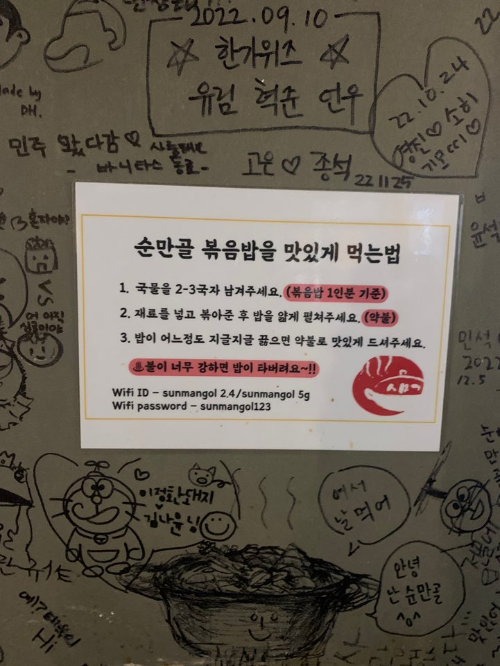 2022.09.10
한가위즈
유림 혁준 연우
22.10.24
경진♡소히
made by
DH.
민주 왔다감♡
고은♡종석
22 11 25
혼자이야
VS
순만골 볶음밥을 맛있게 먹는법
1. 국물을 2-3국자 남겨주세요. (볶음밥 1인분 기준)
2. 재료를 넣고 볶아준 후 밥을 얇게 펼쳐주세요. (약불)
3. 밥이 어느정도 지글지글 끓으면 약불로 맛있게 드셔주세요.
♨불이 너무 강하면 밥이 타버려요~!!
Wifi ID - sunmangol 2.4/sunmangol 5g
Wifi password - sunmangol123
윤석
민서
2022
12.5
돼지
어서
날 먹어
안녕
난 순만골
^o^
Hi